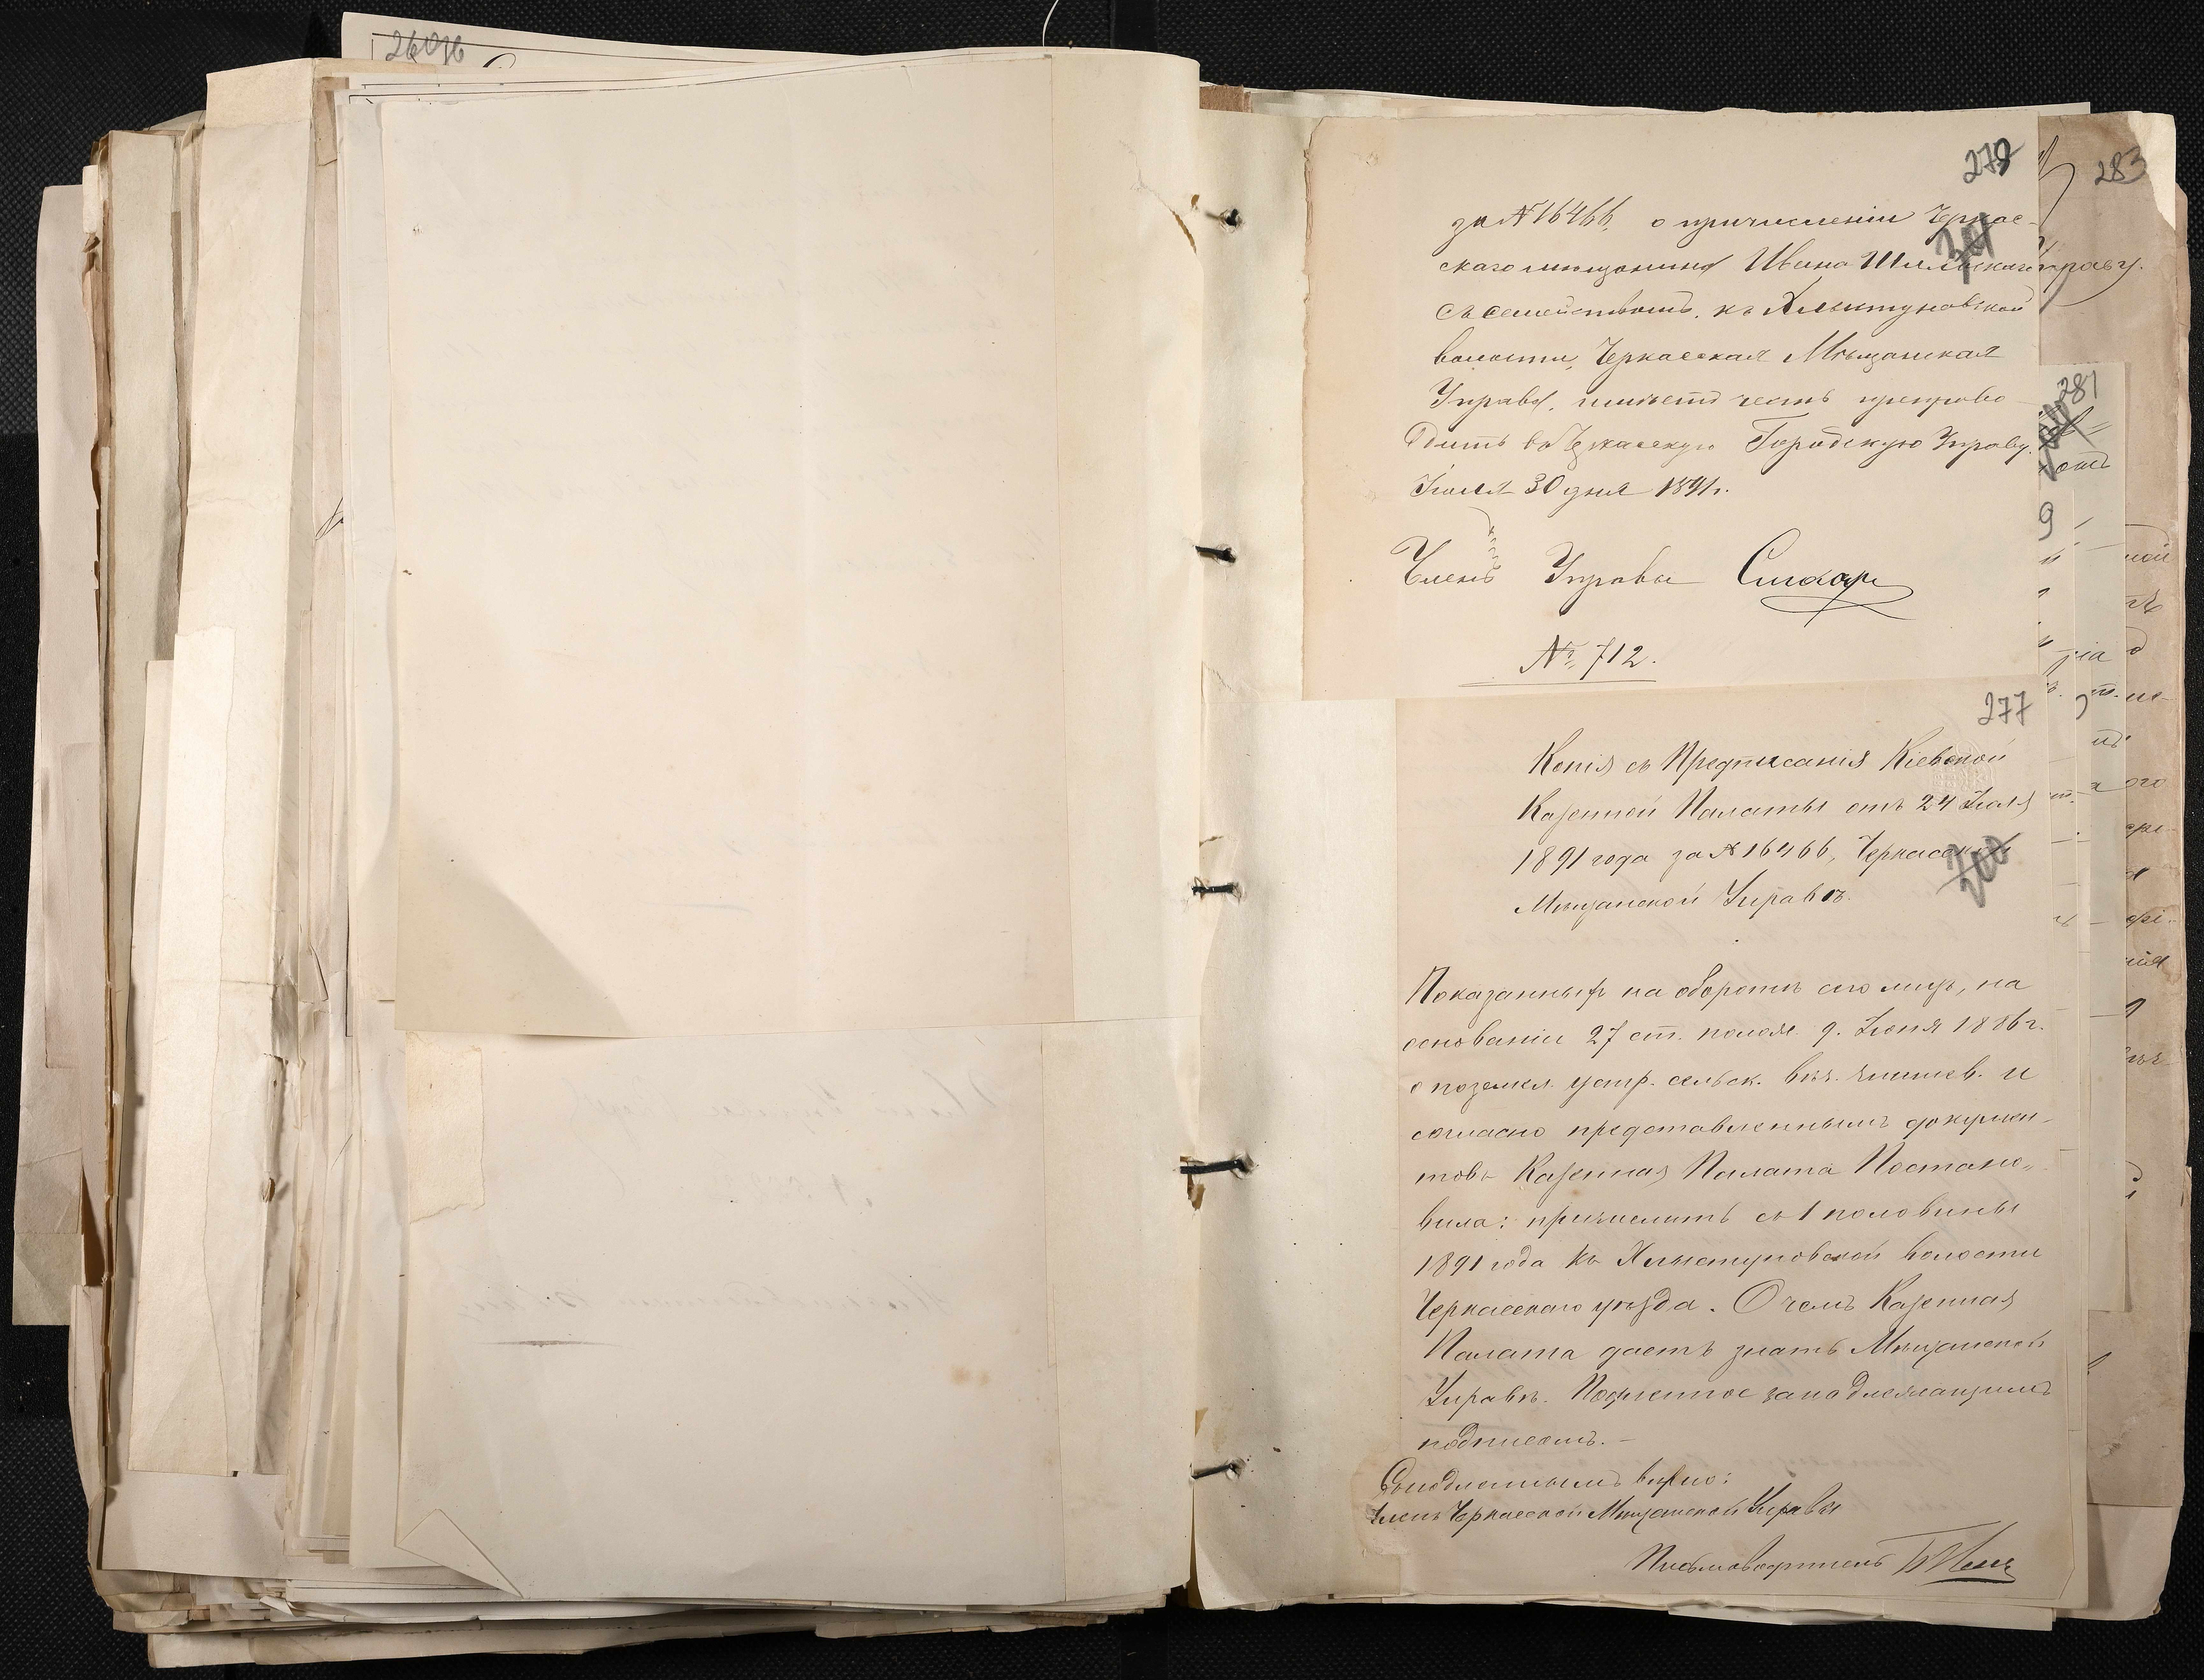 26036
279
за № 16466, о причисленіи Черкас-
скаго мѣщанина Ивана
съ семействомъ, къ Хлыстуновской
волости, Черкасская Мѣщанская
Управа, имѣетъ честь препрово-
дить въ Черкасскую Городскую Управу.
Іюля 30 дня 1891 г.
Членъ Управы
№ 712.
277
Копія съ Предписанія Кіевской
Казенной Палаты отъ 24 Іюля
1891 года за № 16466, Черкасской
Мѣщанской Управѣ.
Показанныхъ на оборотѣ сего лицъ, на
основаніи 27 ст. полож. 9. Іюня 1886 г.
о поземел. устр. сельск. вѣч. чиншев. и
согласно представленнымъ докумен-
товъ Казенная Палата Постано-
вила: причислить съ 1 половины
1891 года къ Хлыстуновской волости
Черкасскаго уѣзда. О чемъ Казенная
Палата даетъ знать Мѣщанской
Управѣ. Подлинное за надлежащимъ
подписомъ. –
Съ подлиннымъ вѣрно:
Членъ Черкасской Мѣщанской Управы
Письмоводитель
283
281